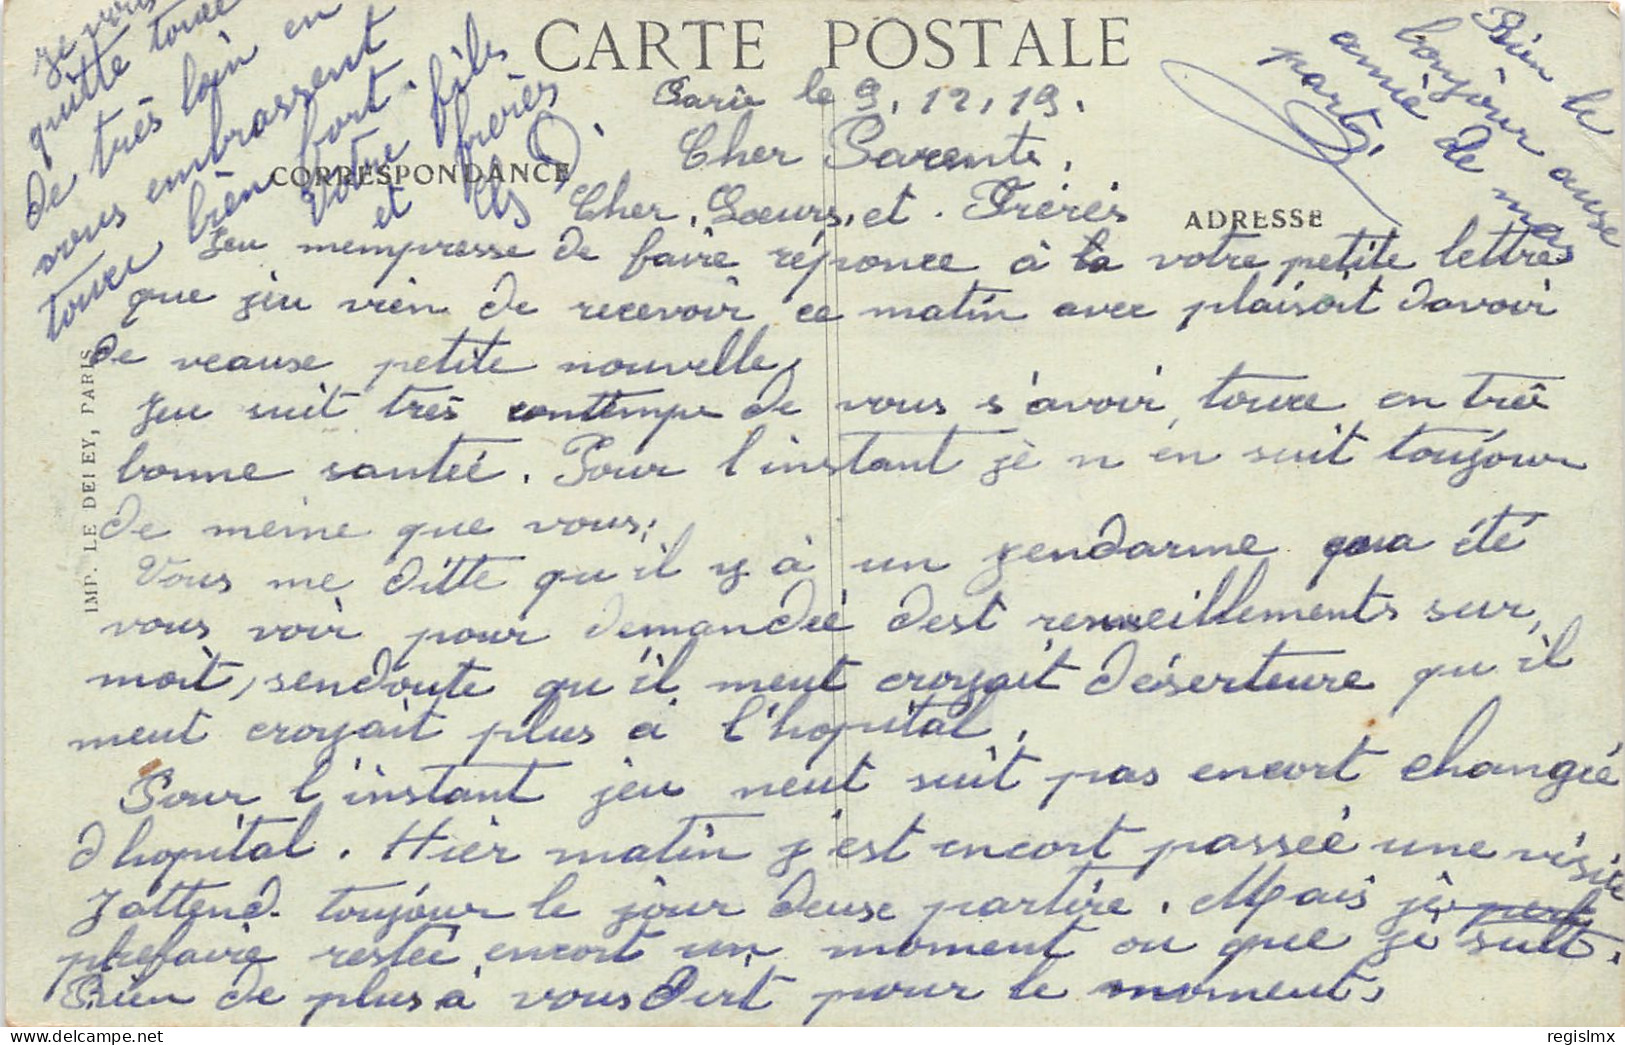 CARTE POSTALE
CORRESPONDANCE
ADRESSE
IMP. LE DELEY, PARIS
Paris le 9.12.19.
Cher Parents,
Cher, Soeurs, et. Frérés
Jeu mempresse de faire réponce à la votre petite lettre
que jeu vien de recevoir ce matin avec plaisoit davoir
de veause petite nouvelle,
Jeu suit très contempe de vous s'avoir touce en trê
bonne santéé. Pour l'instant jè n'én suit toujour
de meine que vous,
Vous me ditte qu'il y à un jendarme qua été
vous voir pour demandéé dest renseillements sur,
moit, sendoute qu'il meut croyait déserteure qu'il
meut croyait plus à l'hopital,
Pour l'instant jeu neut suit pas encort changéé
d'hopital. Hier matin j'est encort passéé une visite
J'attend toujour le jour deuse partire. Mais jè
prefaire restéé encort un moment ou que jè suit.
Rien de plus à vous dirt pour le moment,
je vous
quitte touce
de très loin en
vous embrassent
touce bien fort.
Votre fils
et frères
Bien le
bonjour ausse
amié de mas
part,
regislmx